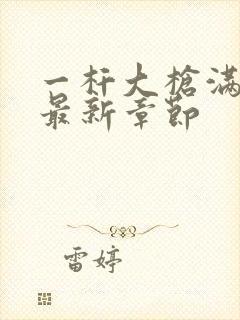 一杆大槍滿
最新章節
雷婷